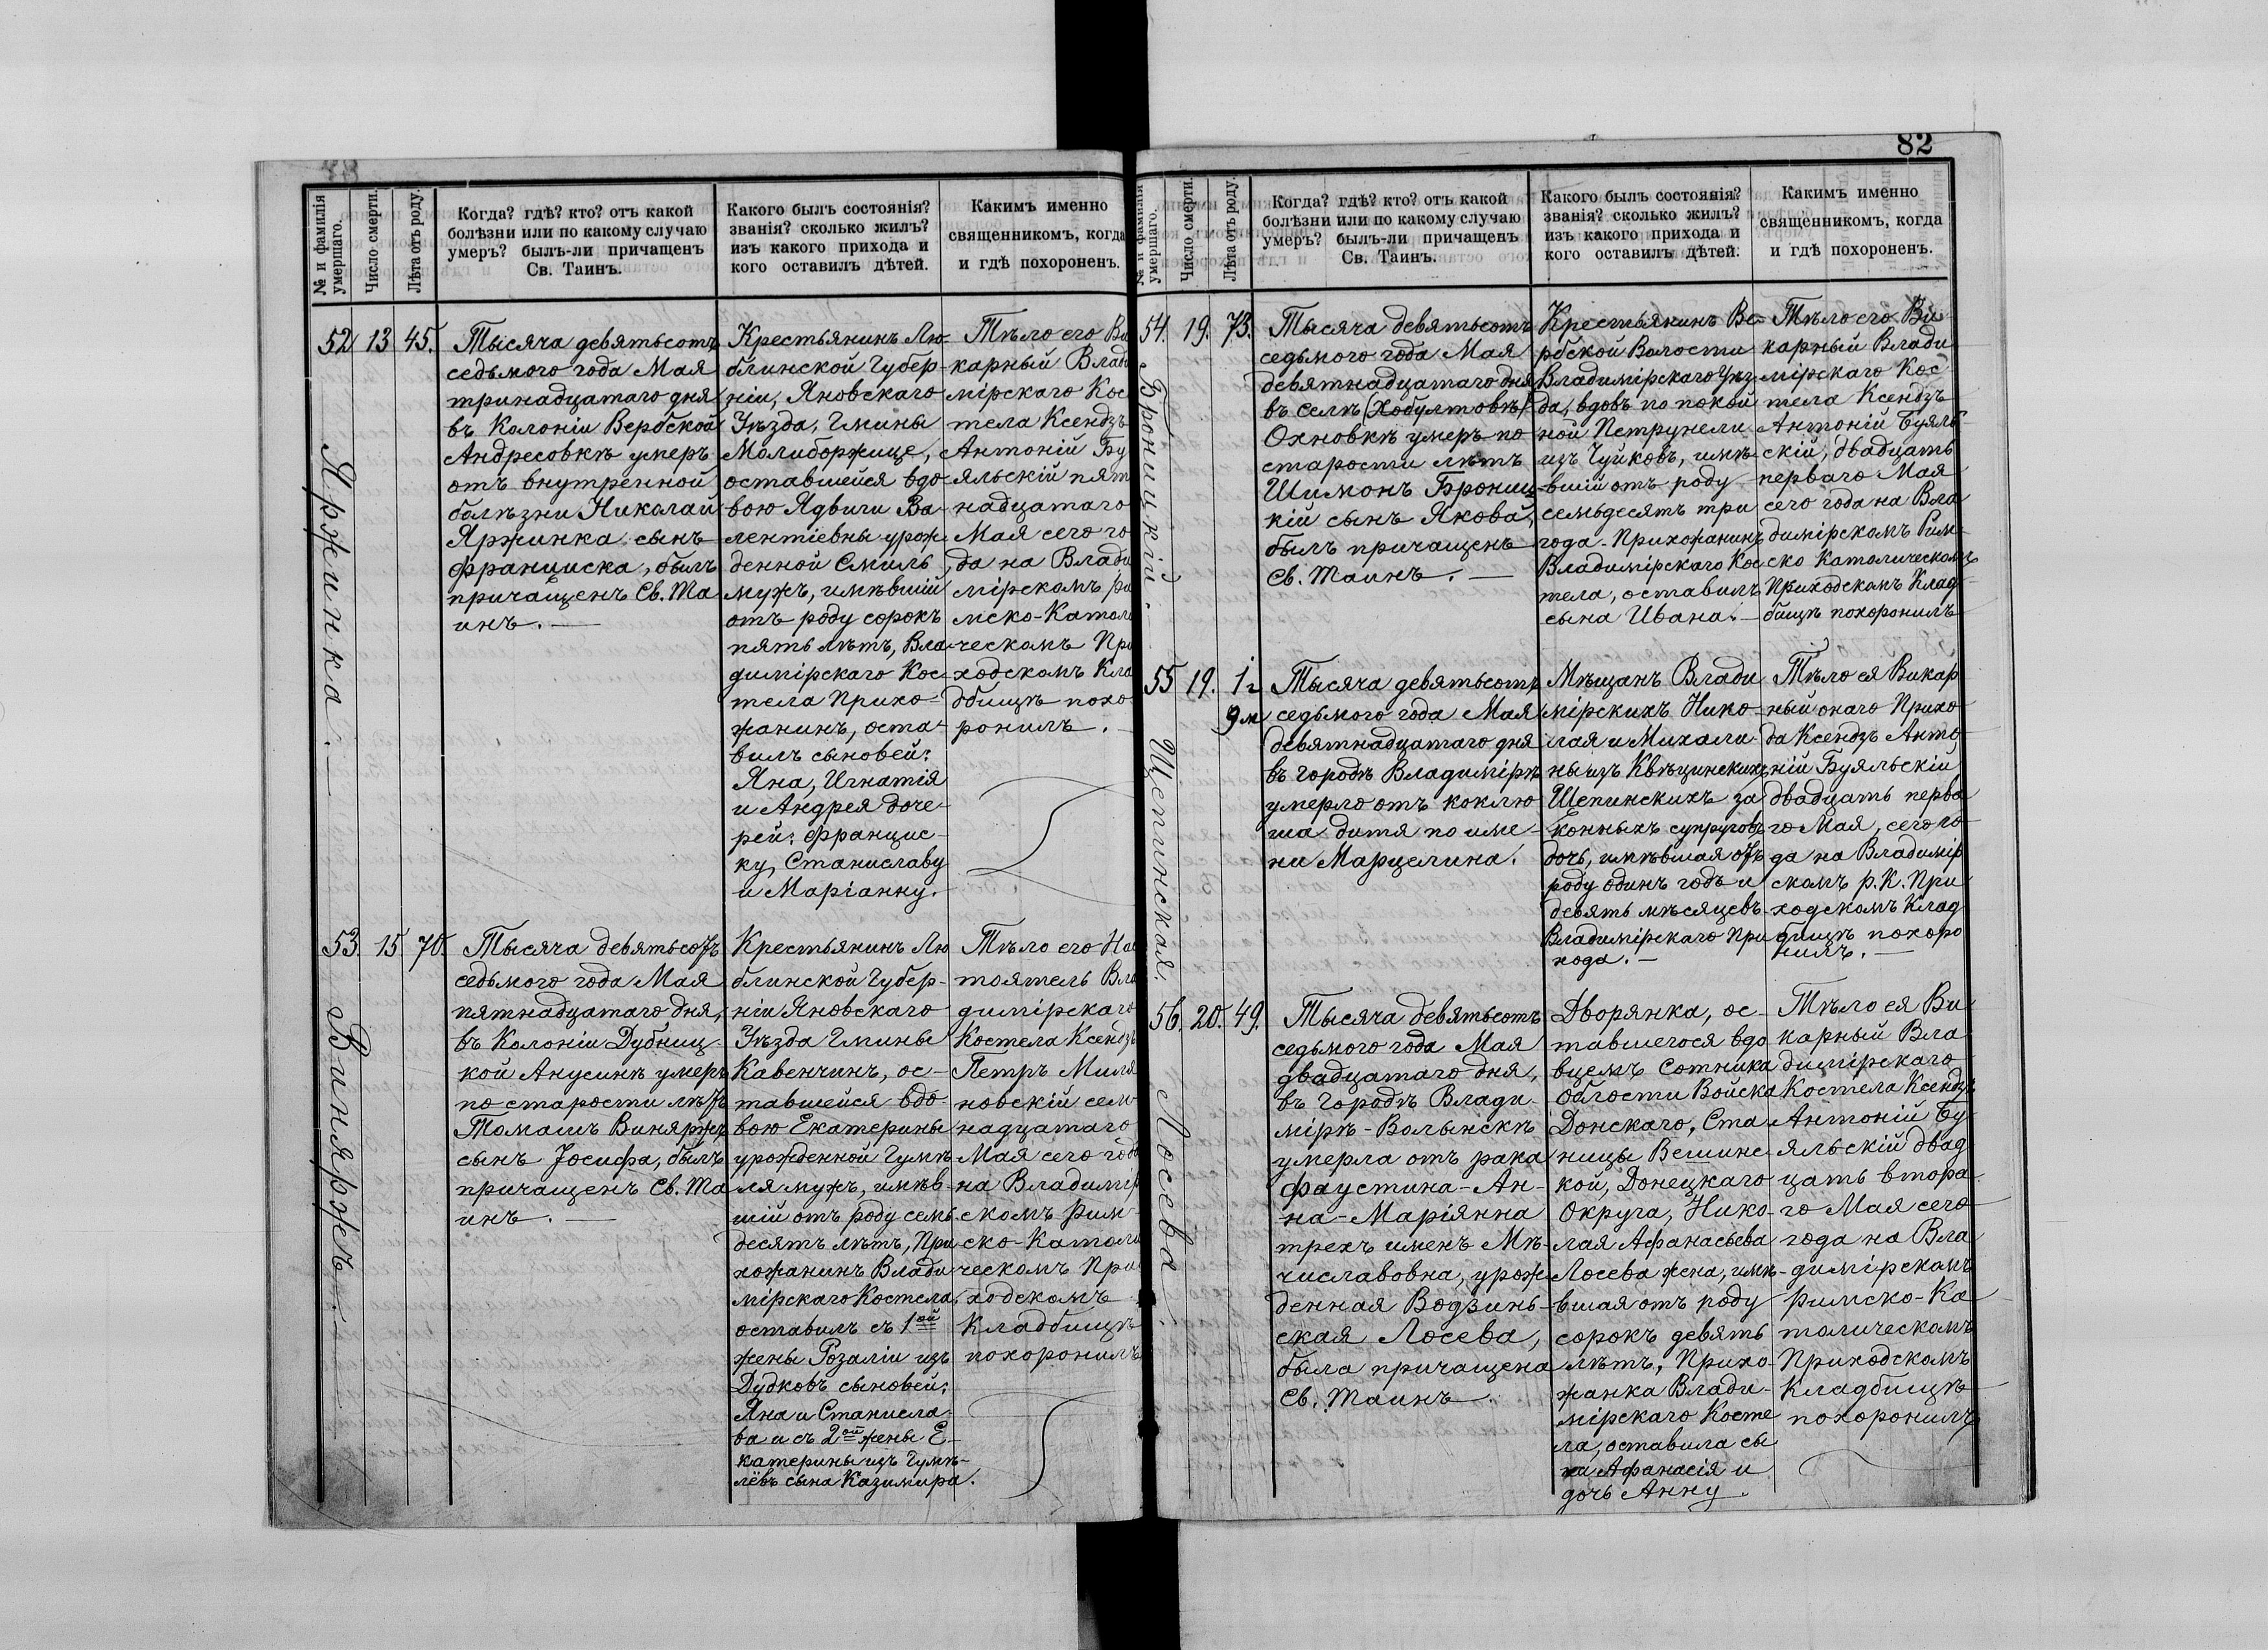 82
№ и фамилія
умершаго.
Число смерти.
Лѣта отъ роду.
Когда? гдѣ? кто? отъ какой
болѣзни или по какому случаю
умеръ? былъ-ли причащенъ
Св. Таинъ.
Какого былъ состоянія?
званія? сколько жилъ?
изъ какого прихода и
кого оставилъ дѣтей.
Какимъ именно
священникомъ, когда
и гдѣ похороненъ.
52 13 45.
Яржинка.
Тысяча девятьсотъ
седьмого года Мая
тринадцатаго дня
въ Колоніи Вербской
Андресовкѣ умеръ
отъ внутренной
болѣзни Николай
Яржинка сынъ
Франциска, былъ
причащенъ Св. Та
инъ.
Крестьянинъ Лю-
блинской Губер-
ніи, Яновскаго
Уѣзда, Гмины
Молиборжице,
оставшейся вдо
вою Ядвиги Ва-
лентіевны урож
денной Смиль
мужъ, имѣвшій
отъ роду сорокъ
пять лѣтъ, Вла-
димірскаго Кос-
тела прихо-
жанинъ, оста-
вилъ сыновей:
Яна, Игнатія
и Андрея доче-
рей: Францис-
ку, Станиславу
и Маріанну.
Тѣло его Ви
карный Влади
мірскаго Кос
тела Ксендзъ
Антоній Бу
яльскій пят
надцатаго
Мая сего го
да на Влади
мірскомъ ри
мско-Католи
ческомъ При
ходскомъ Кла
дбищѣ похо-
ронилъ.
53. 15 70.
Виняржъ.
Тысяча девятьсотъ
седьмого года Мая
пятнадцатаго дня,
въ Колоніи Дубниц-
кой Анусинѣ умеръ
по старости лѣтъ
Томашъ Виняржъ
сынъ Іосифа, былъ
причащенъ Св. Та
инъ.
Крестьянинъ Лю
блинской Губер-
ніи Яновскаго
Уѣзда Гмины
Кавенчинъ, ос-
тавшейся вдо-
вою Екатерины
урожденной Гумѣ
ля мужъ, имѣв-
шій отъ роду семь-
десятъ лѣтъ, При
хожанинъ Влади-
мірскаго Костела,
оставилъ съ 1ой
жены Розаліи изъ
Дудковъ сыновей:
Яна и Станисла-
ва и съ 2ой жены Е-
катерины изъ Гумѣ-
лёвъ сына Казимира.
Тѣло его Нас
тоятель Вла
димірскаго
Костела Ксендзъ
Петръ Миля
новскій сем
надцатаго
Мая сего года
на Владимір
скомъ Рим-
ско-Католи
ческомъ При
ходскомъ
Кладбищѣ
похоронилъ
№ и фамилія
умершаго.
Число смерти.
Лѣта отъ роду.
Когда? гдѣ? кто? отъ какой
болѣзни или по какому случаю
умеръ? былъ-ли причащенъ
Св. Таинъ.
Какого былъ состоянія?
званія? сколько жилъ?
изъ какого прихода и
кого оставилъ дѣтей.
Какимъ именно
священникомъ, когда
и гдѣ похороненъ.
54. 19. 73.
Броницкій.
Тысяча девятьсотъ
седьмого года Мая
девятнадцатаго дня
въ селѣ (Хобултовѣ)
Охновкѣ умеръ по
старости лѣтъ
Шимонъ Брониц-
кій сынъ Якова,
былъ причащенъ
Св. Таинъ.
Крестьянинъ Ве-
рбской Волости
Владимірскаго Уѣз-
да, вдовъ по покой
ной Петрунели
изъ Чуйковъ, имѣ-
вшій отъ роду
семьдесятъ три
года. Прихожанинъ
Владимірскаго Кос
тела, оставилъ
сына Ивана.
Тѣло его Ви
карный Влади
мірскаго Кос
тела Ксендзъ
Антоній Буяль-
скій, двадцать
перваго Мая
сего года на Вла
димірскомъ Рим-
ско Католическомъ
Приходскомъ Клад
бищѣ похоронилъ
55 19. 1 г
9 м
Щепинская.
Тысяча девятьсотъ
седьмого года Мая
девятнадцатаго дня
въ городѣ Владимірѣ
умерло отъ коклю
ша дитя по име-
ни Марцелина.
Мѣщанъ Влади
мірскихъ Нико-
лая и Михали-
ны изъ Квѣцинскихъ
Щепинскихъ за
конныхъ супруговъ
дочь, имѣвшая отъ
роду одинъ годъ и
девять мѣсяцевъ
Владимірскаго При
хода.
Тѣло ея Викар
ный онаго Прихо
да Ксендзъ Анто
ній Буяльскій
двадцать перва
го Мая, сего го-
да на Владимір
скомъ р. К. При
ходскомъ Клад
бищѣ похоро
нилъ.
56. 20. 49.
Лосева.
Тысяча девятьсотъ
седьмого года Мая
двадцатаго дня,
въ городѣ Влади-
мірѣ-Волынскѣ
умерла отъ рака
Фаустина-Ан-
на-Маріянна
трехъ именъ Мѣ-
числавовна, урож-
денная Водзинь-
ская Лосева,
была причащена
Св. Таинъ.
Дворянка, ос-
тавшегося вдо
вцемъ Сотника
области Войска
Донскаго, Ста
ницы Вешинс-
кой, Донецкаго
Округа, Нико-
лая Афанасьева
Лосева жена, имѣ-
вшая отъ роду
сорокъ девять
лѣтъ, Прихо-
жанка Влади-
мірскаго Косте
ла, оставила сы
на Афанасія и
дочь Анну.
Тѣло ея Ви
карный Вла
димірскаго
Костела Ксендзъ
Антоній Бу-
яльскій двад-
цать втора-
го Мая сего
года на Вла
димірскомъ
римско-Ка
толическомъ
Приходскомъ
Кладбищѣ
похоронилъ